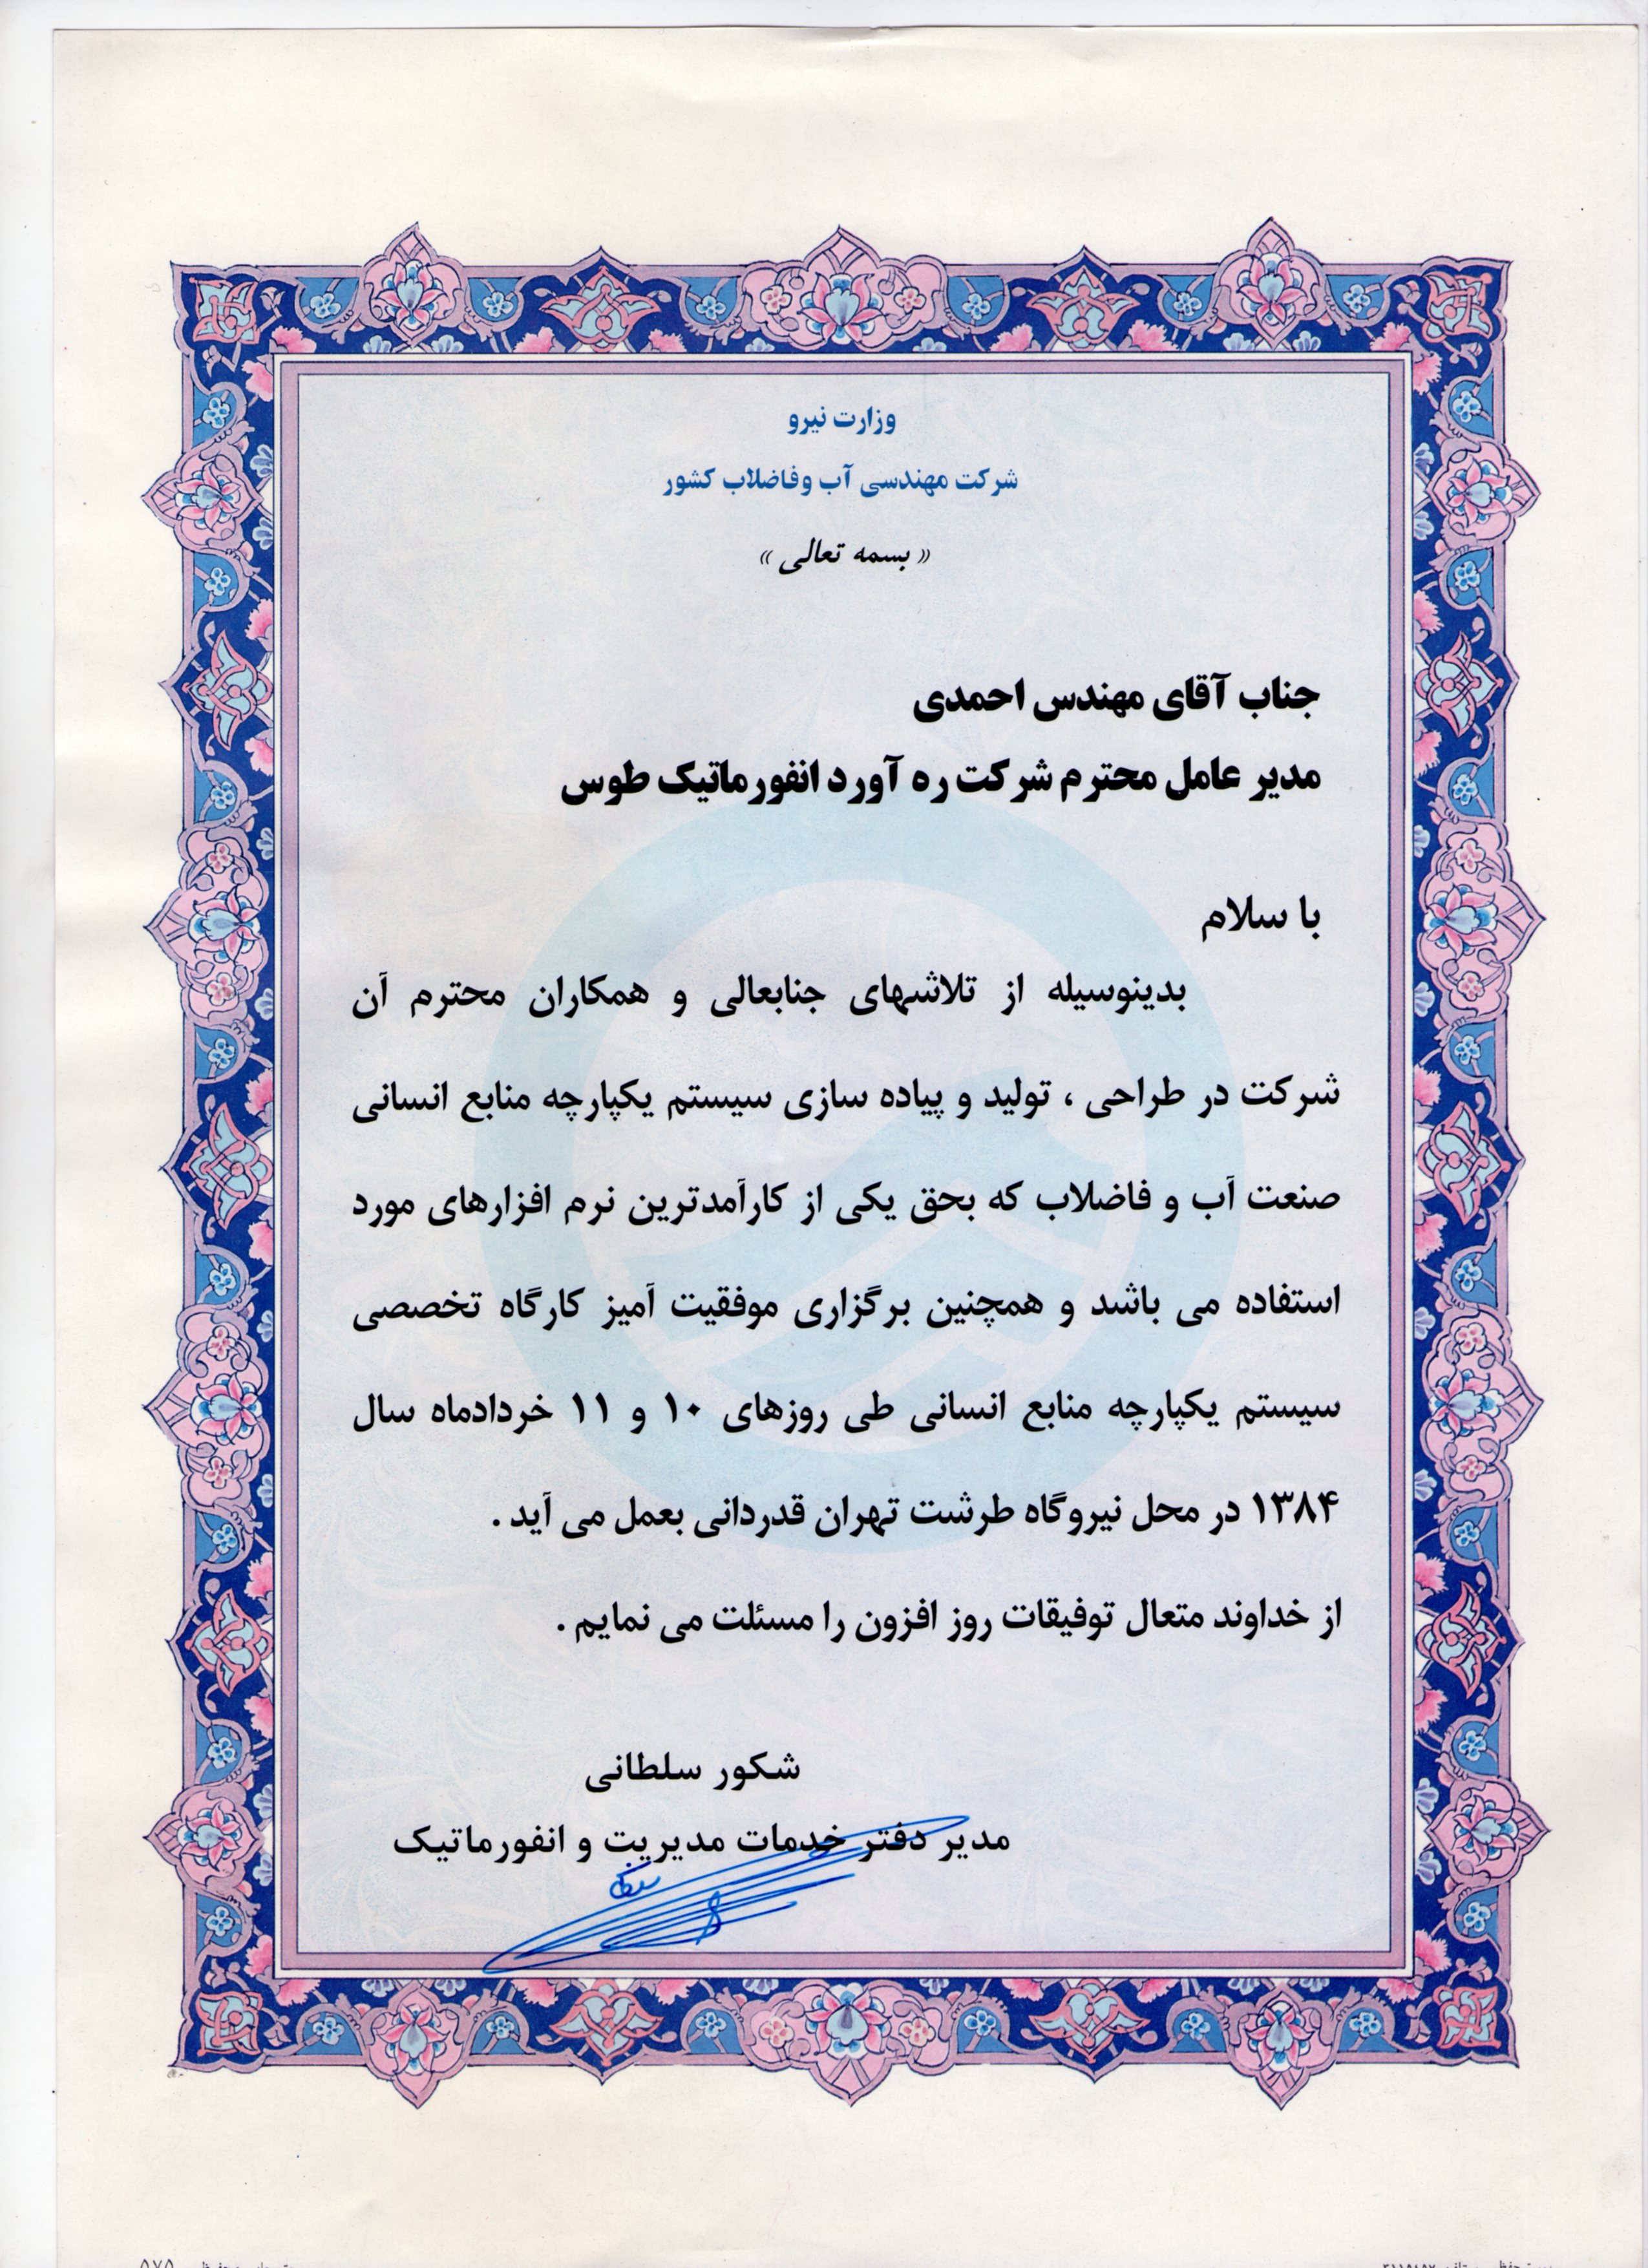 وزارت نیرو
شرکت مهندسی آب وفاضلاب کشور
« بسمه تعالی »
جناب آقای مهندس احمدی
مدیر عامل محترم شرکت ره آورد انفورماتیک طوس
با سلام
بدینوسیله از تلاشهای جنابعالی و همکاران محترم آن
شرکت در طراحی ، تولید و پیاده سازی سیستم یکپارچه منابع انسانی
صنعت آب و فاضلاب که بحق یکی از کارآمدترین نرم افزارهای مورد
استفاده می باشد و همچنین برگزاری موفقیت آمیز کارگاه تخصصی
سیستم یکپارچه منابع انسانی طی روزهای ۱۰ و ۱۱ خردادماه سال
۱۳۸۴ در محل نیروگاه طرشت تهران قدردانی بعمل می آید .
از خداوند متعال توفیقات روز افزون را مسئلت می نمایم .
شکور سلطانی
مدیر دفتر خدمات مدیریت و انفورماتیک